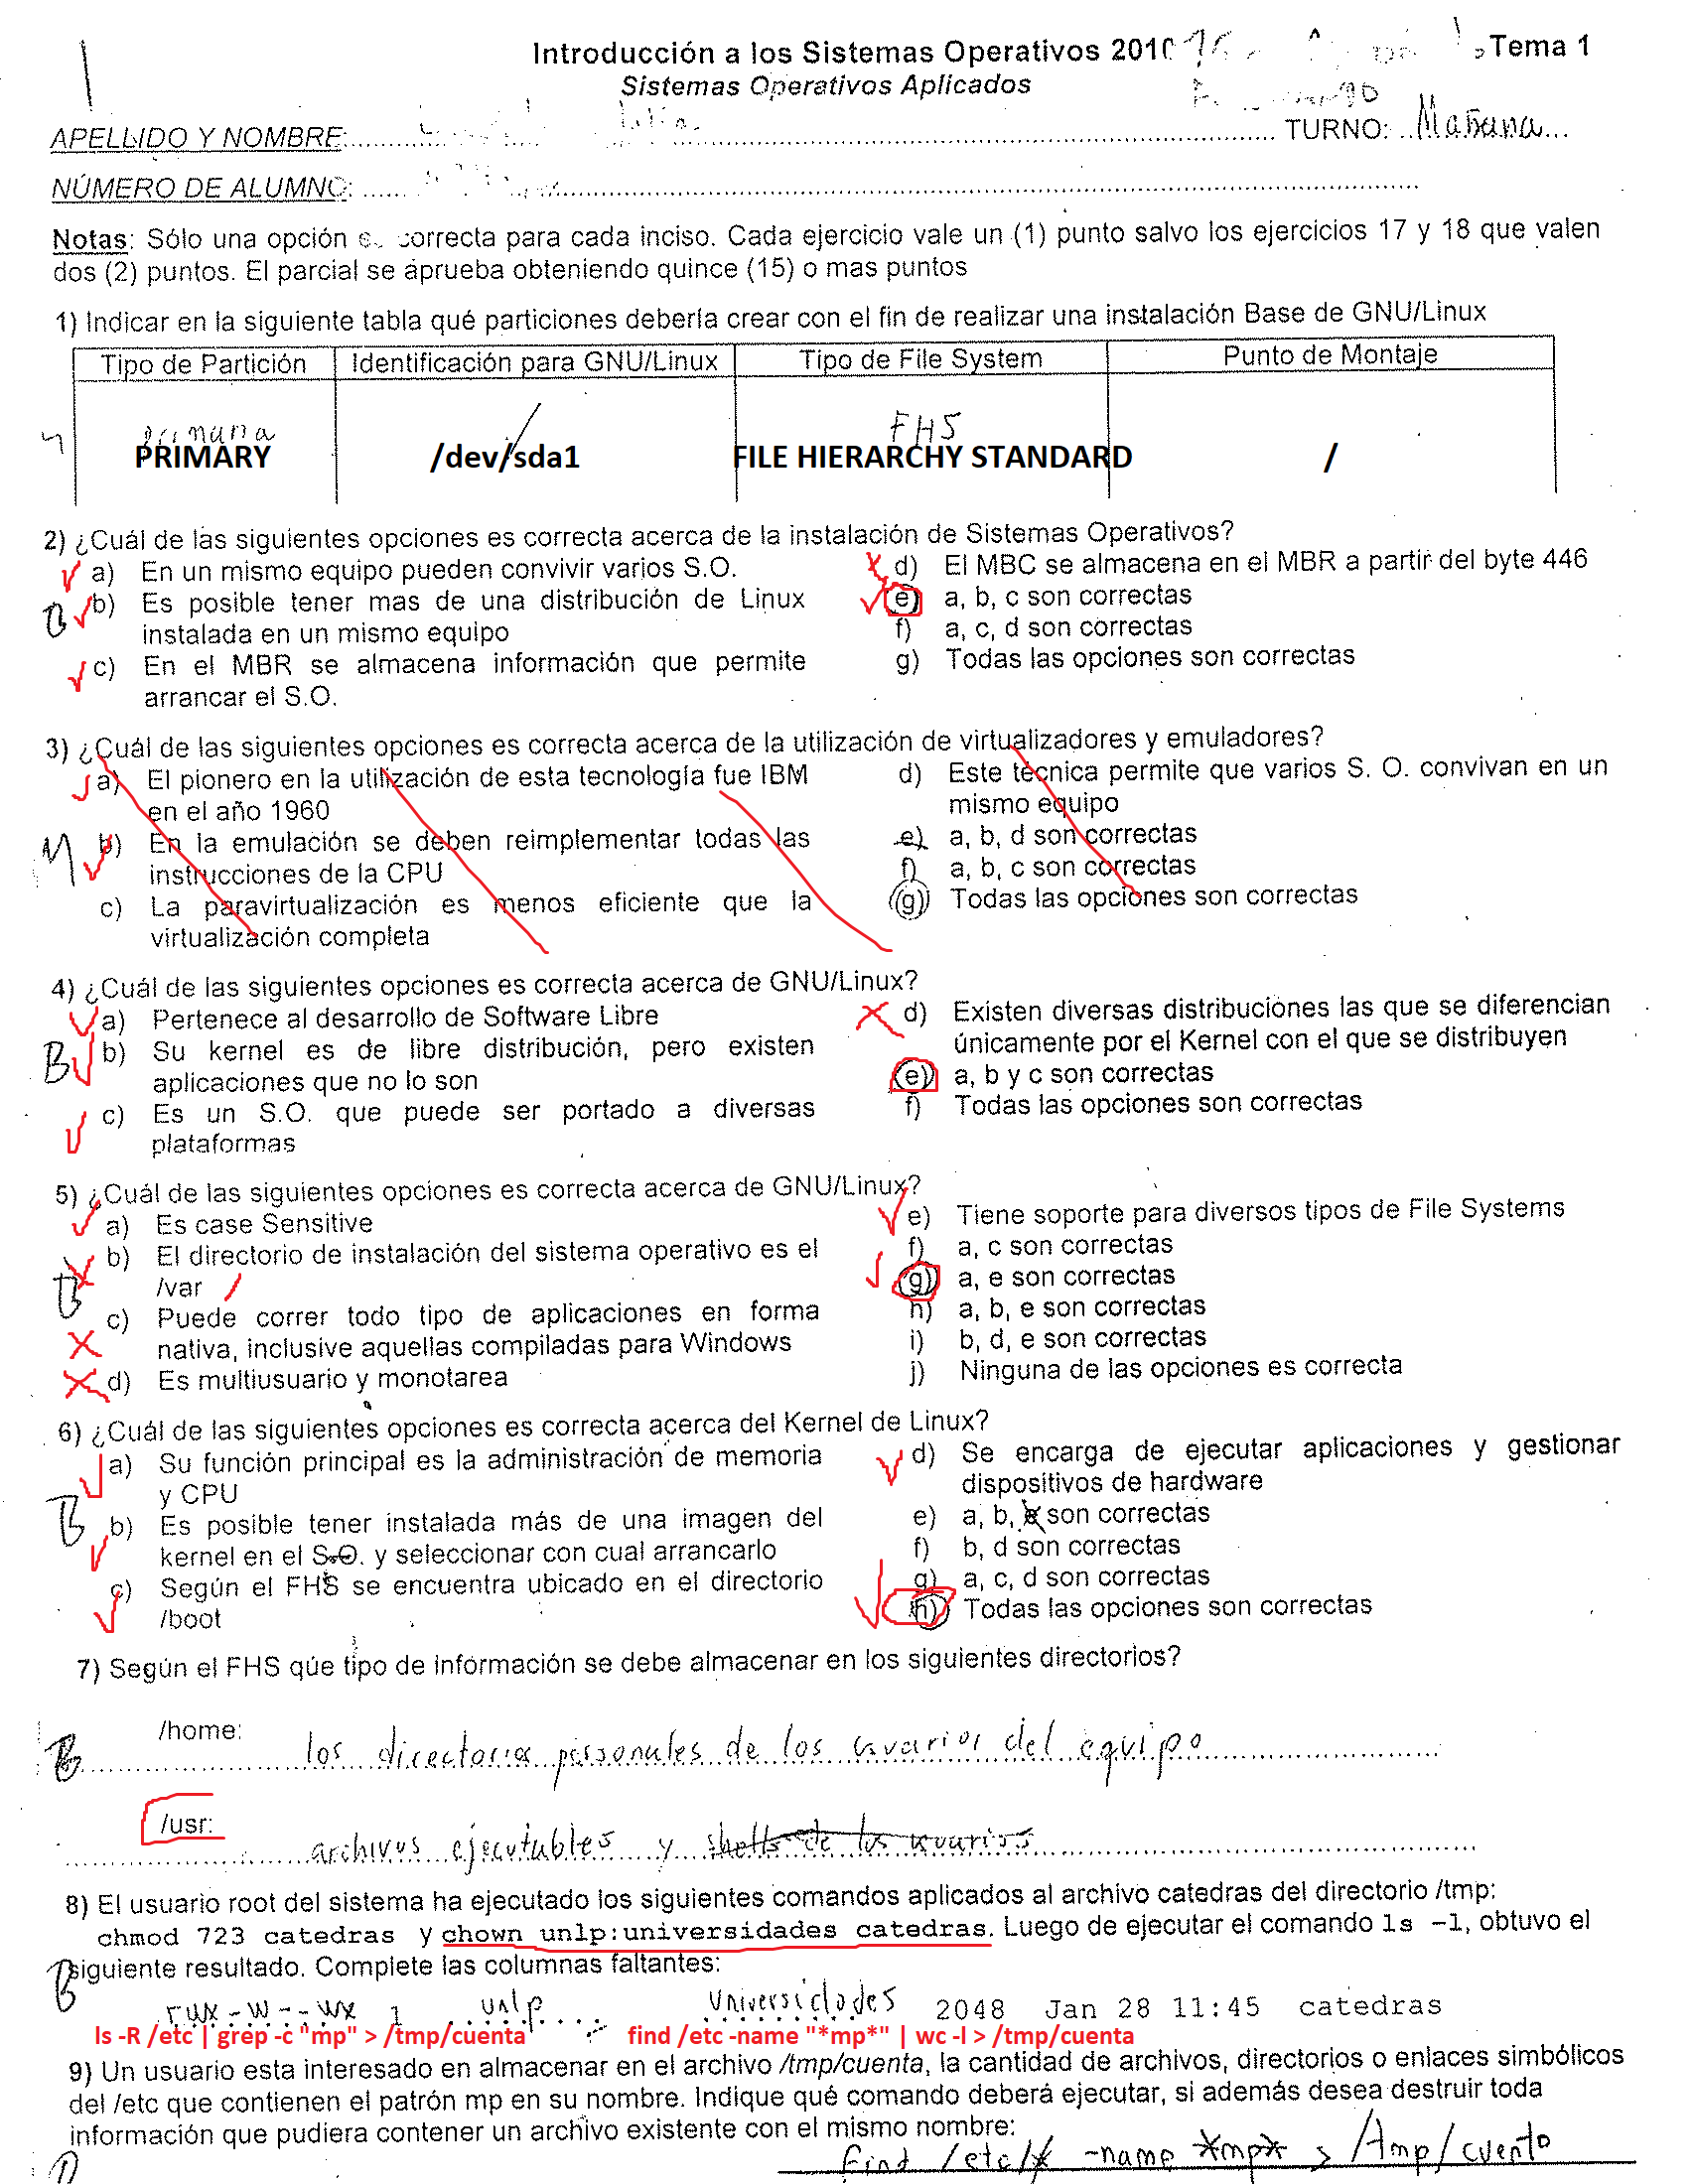 Introducción a los Sistemas Operativos 2010 Tema 1
Sistemas Operativos Aplicados
APELLIDO Y NOMBRE: TURNO: Mañana
NÚMERO DE ALUMNO:
Notas: Sólo una opción es correcta para cada inciso. Cada ejercicio vale un (1) punto salvo los ejercicios 17 y 18 que valen
dos (2) puntos. El parcial se aprueba obteniendo quince (15) o mas puntos
1) Indicar en la siguiente tabla qué particiones debería crear con el fin de realizar una instalación Base de GNU/Linux
Tipo de Partición Identificación para GNU/Linux Tipo de File System Punto de Montaje
primaria / FHS
PRIMARY /dev/sda1 FILE HIERARCHY STANDARD /
2) ¿Cuál de las siguientes opciones es correcta acerca de la instalación de Sistemas Operativos?
a) En un mismo equipo pueden convivir varios S.O.
B b) Es posible tener mas de una distribución de Linux
instalada en un mismo equipo
c) En el MBR se almacena información que permite
arrancar el S.O.
d) El MBC se almacena en el MBR a partir del byte 446
e) a, b, c son correctas
f) a, c, d son correctas
g) Todas las opciones son correctas
3) ¿Cuál de las siguientes opciones es correcta acerca de la utilización de virtualizadores y emuladores?
a) El pionero en la utilización de esta tecnología fue IBM
en el año 1960
M b) En la emulación se deben reimplementar todas las
instrucciones de la CPU
c) La paravirtualización es menos eficiente que la
virtualización completa
d) Este técnica permite que varios S. O. convivan en un
mismo equipo
e) a, b, d son correctas
f) a, b, c son correctas
g) Todas las opciones son correctas
4) ¿Cuál de las siguientes opciones es correcta acerca de GNU/Linux?
a) Pertenece al desarrollo de Software Libre
B b) Su kernel es de libre distribución, pero existen
aplicaciones que no lo son
c) Es un S.O. que puede ser portado a diversas
plataformas
d) Existen diversas distribuciones las que se diferencian
únicamente por el Kernel con el que se distribuyen
e) a, b y c son correctas
f) Todas las opciones son correctas
5) ¿Cuál de las siguientes opciones es correcta acerca de GNU/Linux?
a) Es case Sensitive
b) El directorio de instalación del sistema operativo es el
B /var /
c) Puede correr todo tipo de aplicaciones en forma
nativa, inclusive aquellas compiladas para Windows
d) Es multiusuario y monotarea
e) Tiene soporte para diversos tipos de File Systems
f) a, c son correctas
g) a, e son correctas
h) a, b, e son correctas
i) b, d, e son correctas
j) Ninguna de las opciones es correcta
6) ¿Cuál de las siguientes opciones es correcta acerca del Kernel de Linux?
a) Su función principal es la administración de memoria
y CPU
B b) Es posible tener instalada más de una imagen del
kernel en el S.O. y seleccionar con cual arrancarlo
c) Según el FHS se encuentra ubicado en el directorio
/boot
d) Se encarga de ejecutar aplicaciones y gestionar
dispositivos de hardware
e) a, b, son correctas
f) b, d son correctas
g) a, c, d son correctas
h) Todas las opciones son correctas
7) Según el FHS qué tipo de información se debe almacenar en los siguientes directorios?
/home:
B los directorios personales de los usuarios del equipo
/usr:
archivos ejecutables y shells de los usuarios
8) El usuario root del sistema ha ejecutado los siguientes comandos aplicados al archivo catedras del directorio /tmp:
chmod 723 catedras y chown unlp:universidades catedras. Luego de ejecutar el comando ls -l, obtuvo el
B siguiente resultado. Complete las columnas faltantes:
rwx-w--wx 1 unlp universidades 2048 Jan 28 11:45 catedras
ls -R /etc | grep -c "mp" > /tmp/cuenta find /etc -name "*mp*" | wc -l > /tmp/cuenta
9) Un usuario esta interesado en almacenar en el archivo /tmp/cuenta, la cantidad de archivos, directorios o enlaces simbólicos
del /etc que contienen el patrón mp en su nombre. Indique qué comando deberá ejecutar, si además desea destruir toda
información que pudiera contener un archivo existente con el mismo nombre:
find /etc/* -name *mp* > /tmp/cuenta